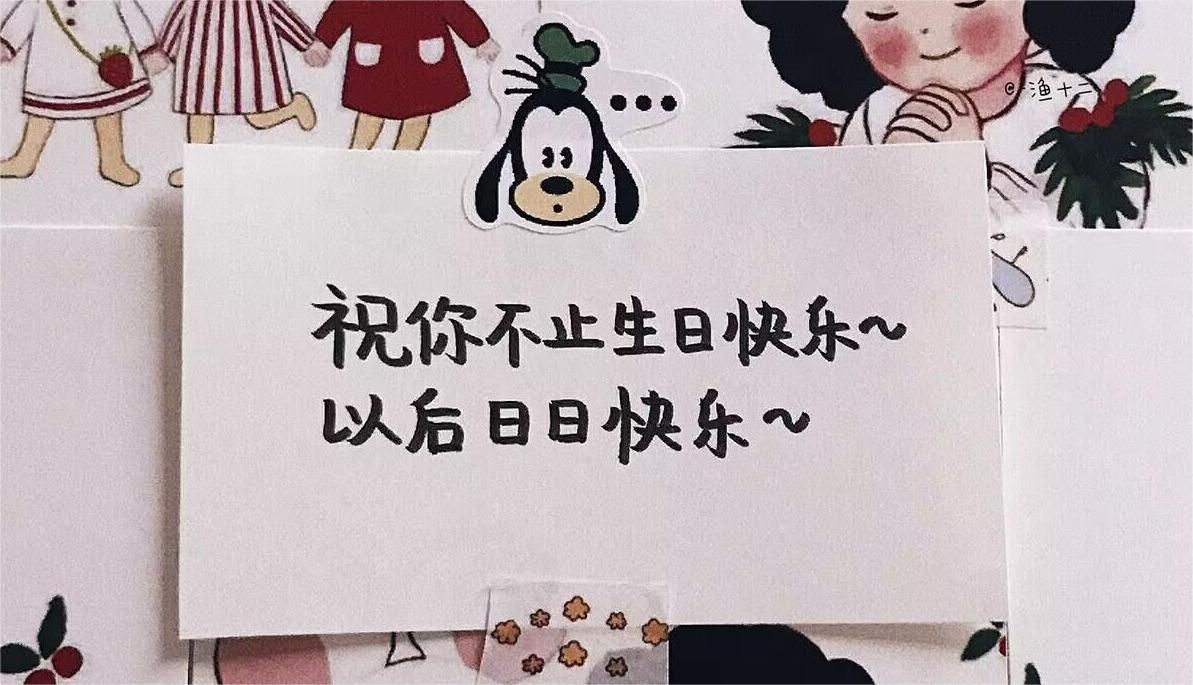 @渔十二
祝你不止生日快乐~
以后日日快乐~